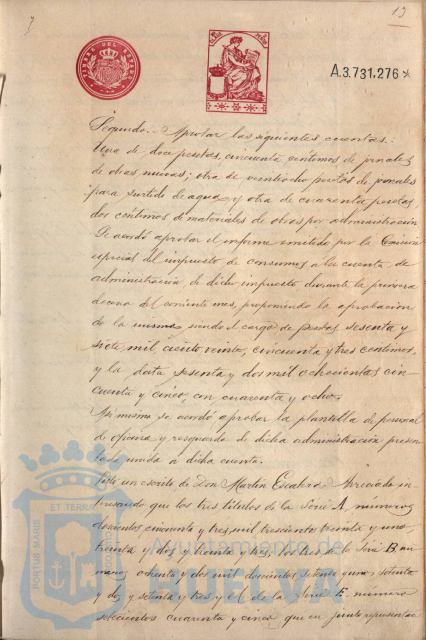 13
TIMBRE DEL ESTADO
A.3.731.276
Segundo.- Aprobar las siguientes cuentas:
Una de doce pesetas, cincuenta céntimos de jornales
de obras nuevas; otra de veintiocho pesetas de jornales
para surtido de aguas y otra de cuarenta pesetas,
dos céntimos de materiales de obras por administración
Se acordó aprobar el informe emitido por la Comisión
especial del impuesto de consumos a la cuenta de
administración de dicho impuesto durante la primera
decena del corriente mes, proponiendo la aprobación
de la misma siendo el cargo de pesetas sesenta y
siete mil ciento veinte, cincuenta y tres centimos,
y la data sesenta y dos mil ochocientas cin
cuenta y cinco, con cuarenta y ocho.
Asi mismo se acordó aprobar la plantilla de personal
de oficina y resguardo de dicha administración presen
tada unida a dicha cuenta.
un escrito de Don Martín
que los tres titulos de la Serie A, números
doscientos cincuenta y tres mil trescientos treinta y uno
treinta y dos y treinta y tres, los tres de la Serie B nu
meros ochenta y dos mil doscientos setenta y uno, setenta
y dos y setenta y tres y el de la Serie E, numero
setecientos cuarenta y cinco que en junto representan
PORTUS MARIS ET TERRAE
Ayuntamiento de
HUELVA